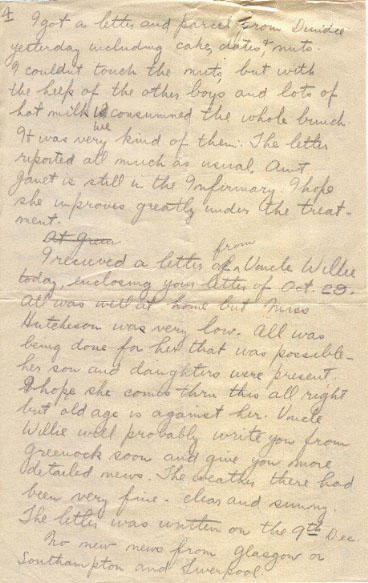 4
I got a letter and parcel from Dundee
yesterday including cake, dates, & nuts.
I couldn't touch the nuts, but with
the help of the other boys and lots of
hot milk we consummed the whole bunch.
It was very kind of them. The letter
reported all much as usual. Aunt
Janet is still in the Infirmary. I hope
she improves greatly under the treat-
ment.
I recieved a letter from Uncle Willie
today, enclosing your letter of Oct 29.
All was well at home but Miss
Hutcheson was very low. All was
being done for her that was possible -
her son and daughters were present.
I hope she comes thru this all right
but old age is against her. Uncle
Willie will probably write you from
Greenock soon and give you more
detailed news. The weather there had
been very fine - clear and sunny.
The letter was written on the 9th Dec.
No new news from Glasgow or
Southampton and Liverpool.